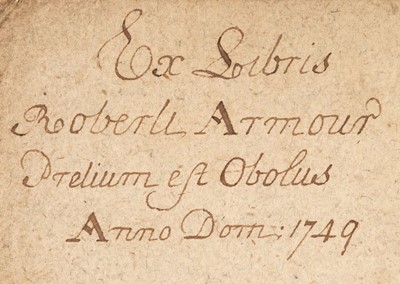 Ex Libris
Roberti Armour
Pretium est Obolus
Anno Dom: 1749